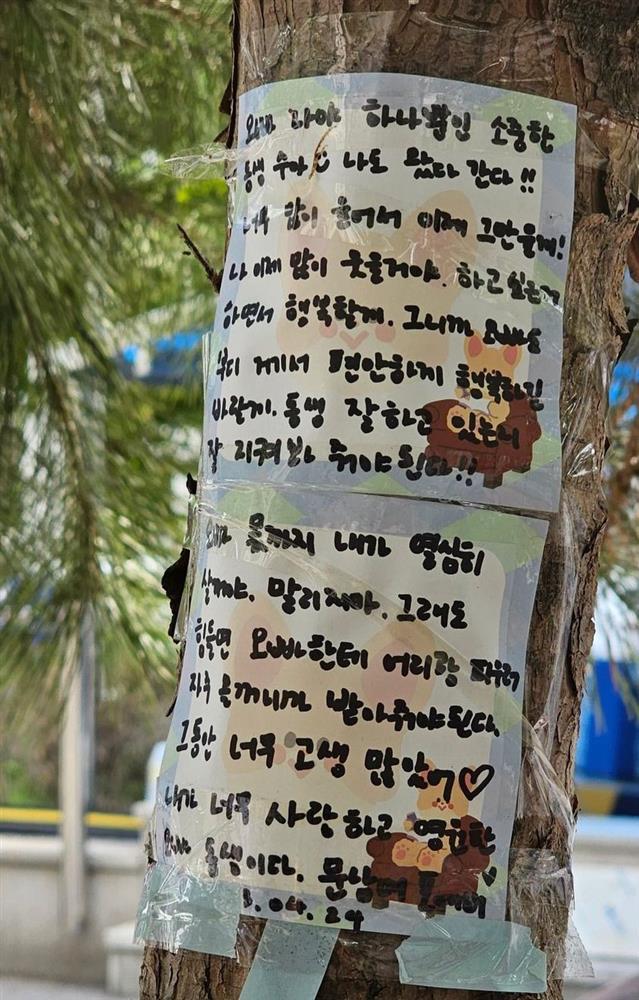 오빠 나야 하나뿐인 소중한
동생 수아 나도 왔다 간다!!
너무 많이 울어서 이제 그만울게!
나 이제 많이 웃을거야. 하고싶은거
하면서 행복할게. 그니까 오빠도
부디 거기서 편안하게 행복하길
바랄게. 동생 잘하고 있는지
잘 지켜봐 줘야된다!!
오빠 몫까지 내가 열심히
살거야. 말리지마. 그래도
힘들면 오빠한테 어리광 피우러
자주 올거니까 받아줘야된다.
그동안 너무 고생 많았어♡
내가 너무 사랑하고 영원한
오빠 동생이다.
.04.24